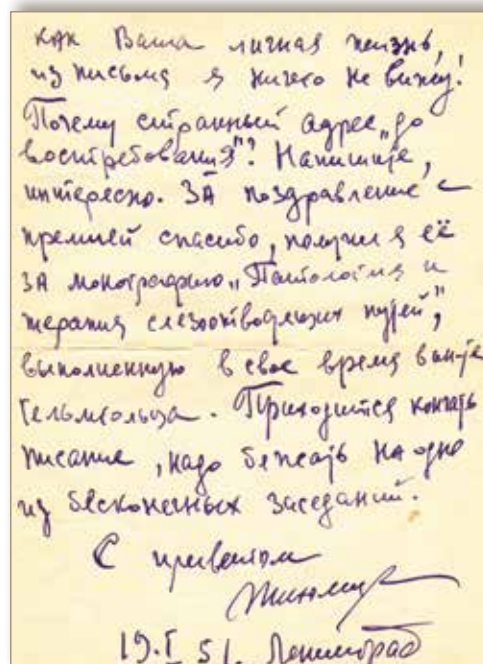 как Ваша личная жизнь,
из письма я ничего не вижу!
Почему странный адрес „до
востребования"? Напишите,
интересно. За поздравление с
премией спасибо, получил я её
за монографию „Патология и
терапия слезоотводящих путей",
выполненную в свое время в ин-те
Гельмгольца. Приходится кончать
писание, надо бежать на одно
из бесконечных заседаний.
С приветом
19.I 51. Ленинград